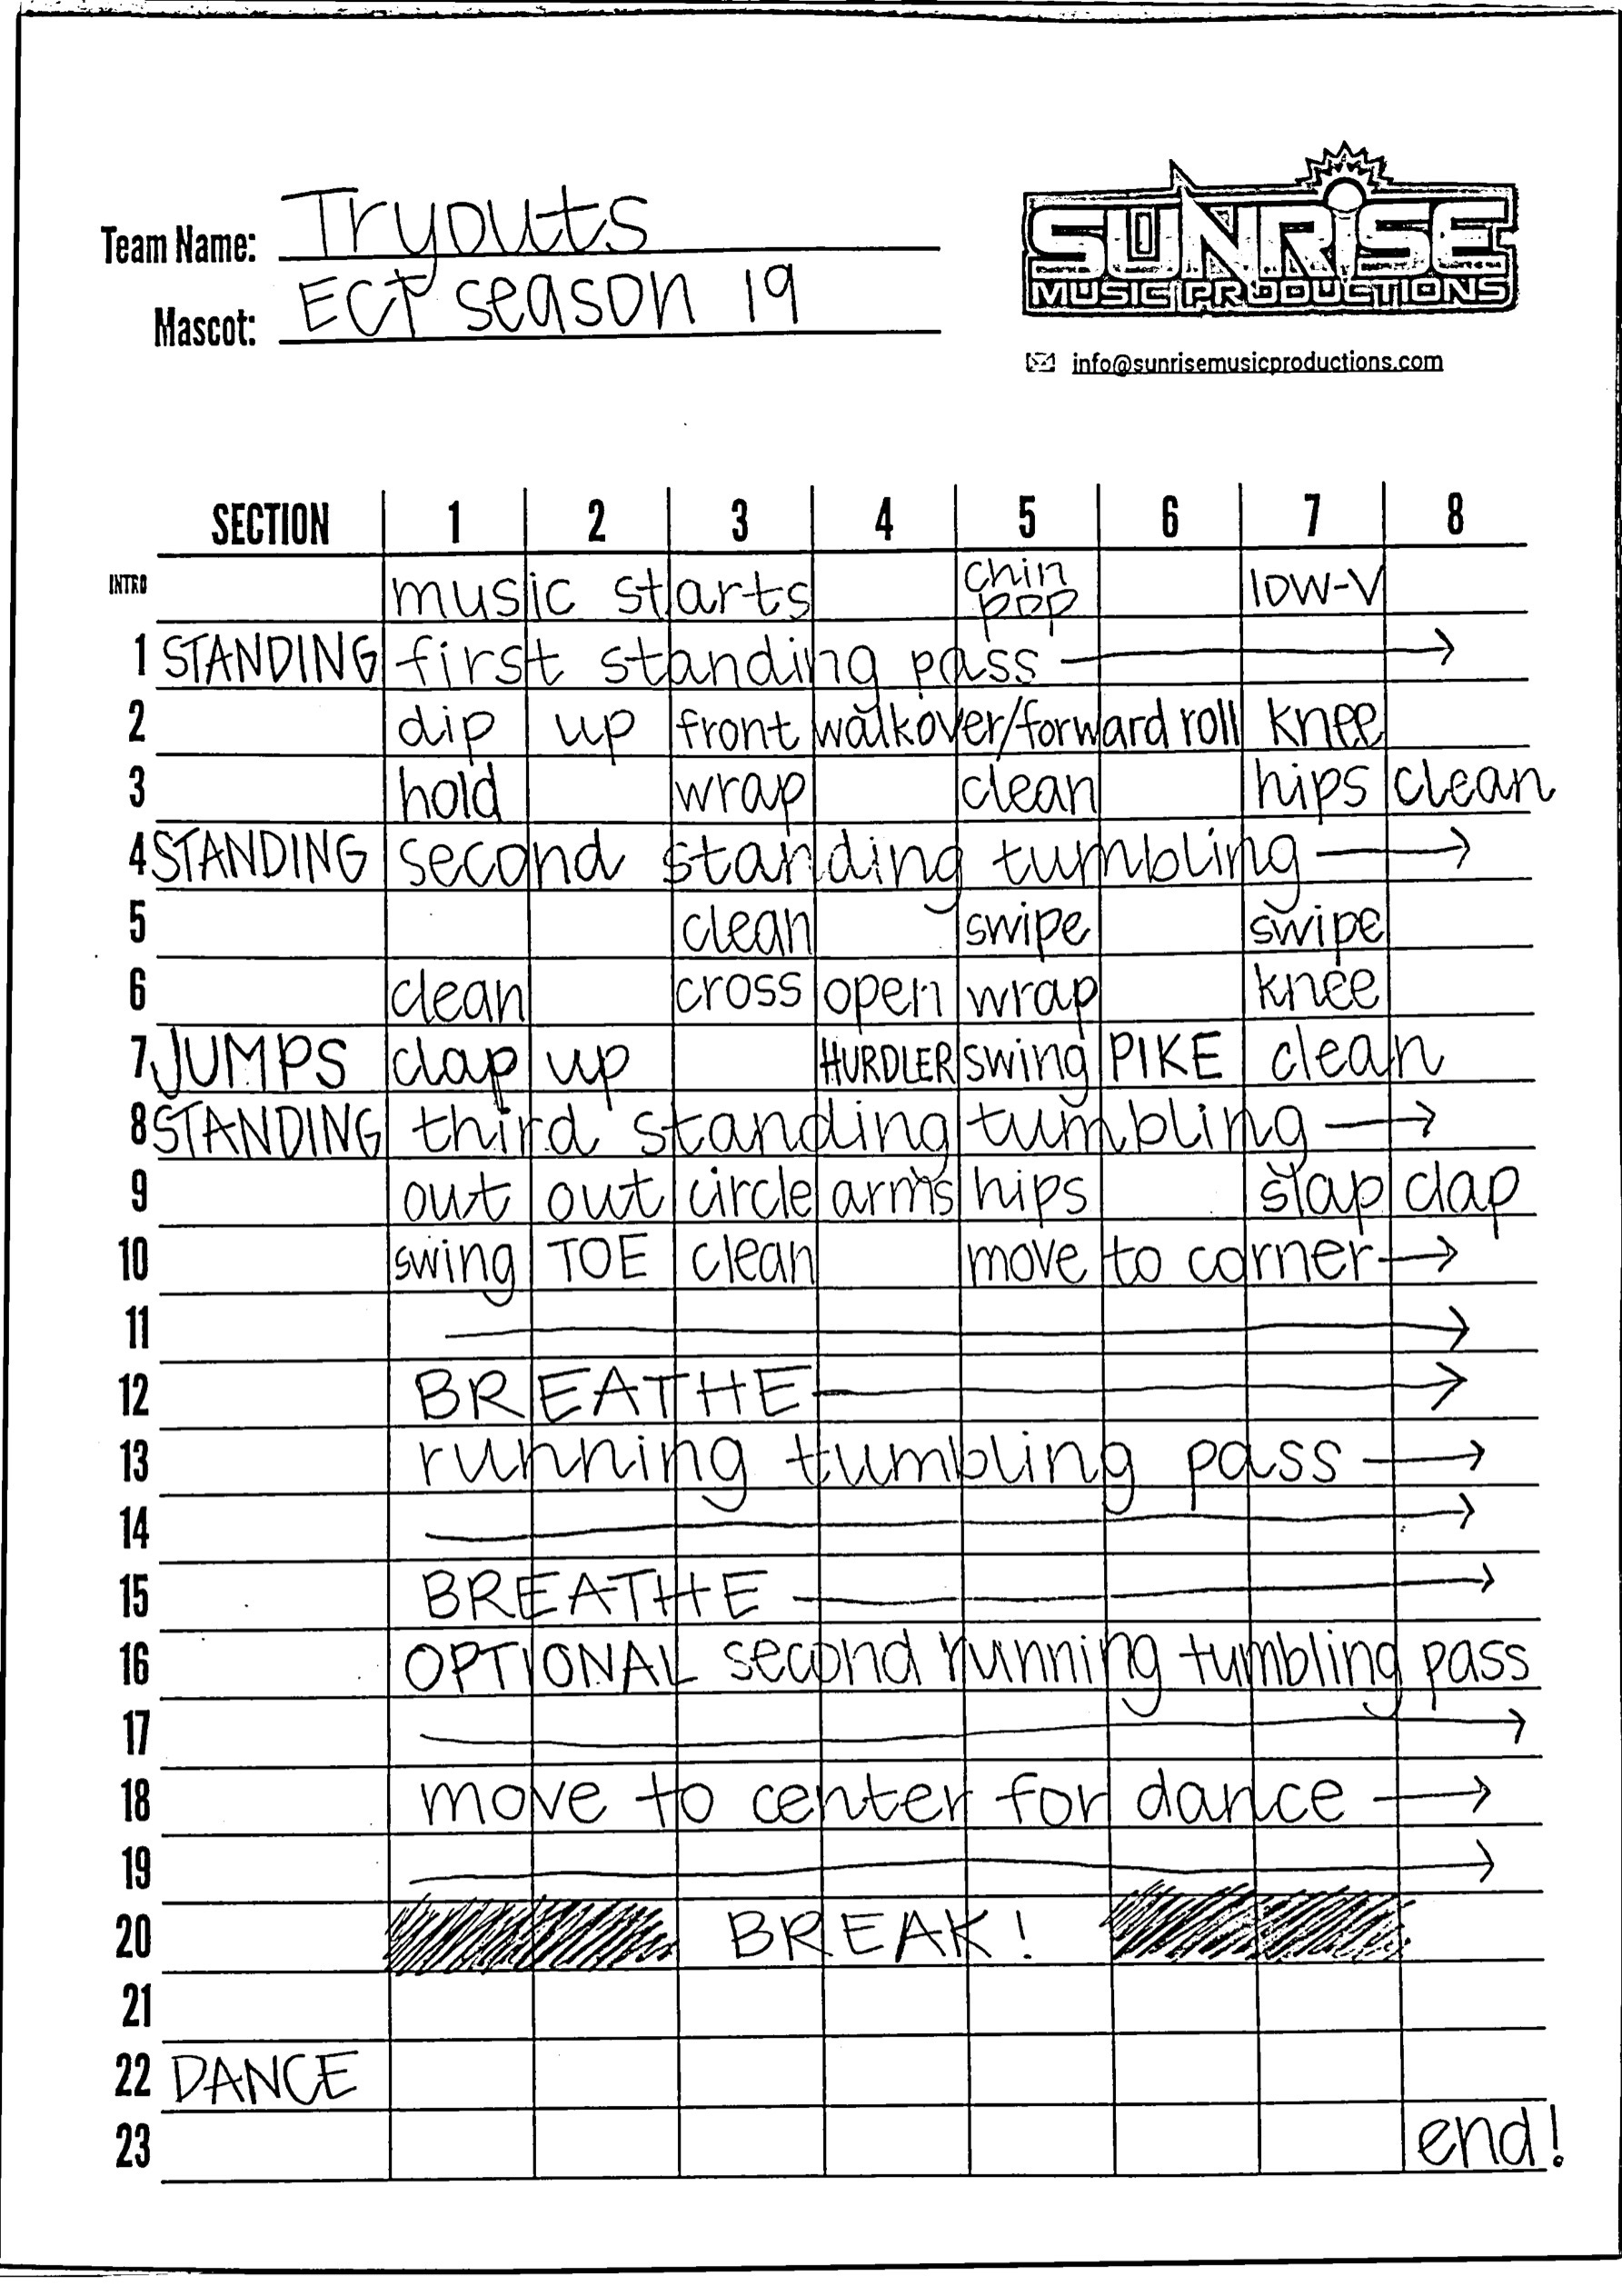 Team Name: Tryouts
Mascot: ECT season 19
SUNRISE
MUSIC PRODUCTIONS
info@sunrisemusicproductions.com
SECTION 1 2 3 4 5 6 7 8
INTRO music starts chin pop low-V
1 STANDING first standing pass →
2 dip up front walkover/forward roll knee
3 hold wrap clean hips clean
4 STANDING second standing tumbling →
5 clean swipe swipe
6 clean cross open wrap knee
7 JUMPS clap up HURDLER swing PIKE clean
8 STANDING third standing tumbling →
9 out out circle arms hips slap clap
10 swing TOE clean move to corner →
11 →
12 BREATHE →
13 running tumbling pass →
14 →
15 BREATHE →
16 OPTIONAL second running tumbling pass
17 →
18 move to center for dance →
19 →
20 BREAK!
21
22 DANCE
23 end!